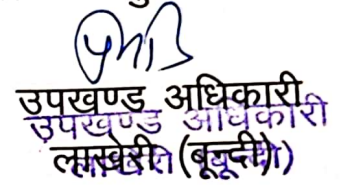 उपखण्ड अधिकारी
उपखण्ड अधिकारी
लाखेरी (बून्दी)